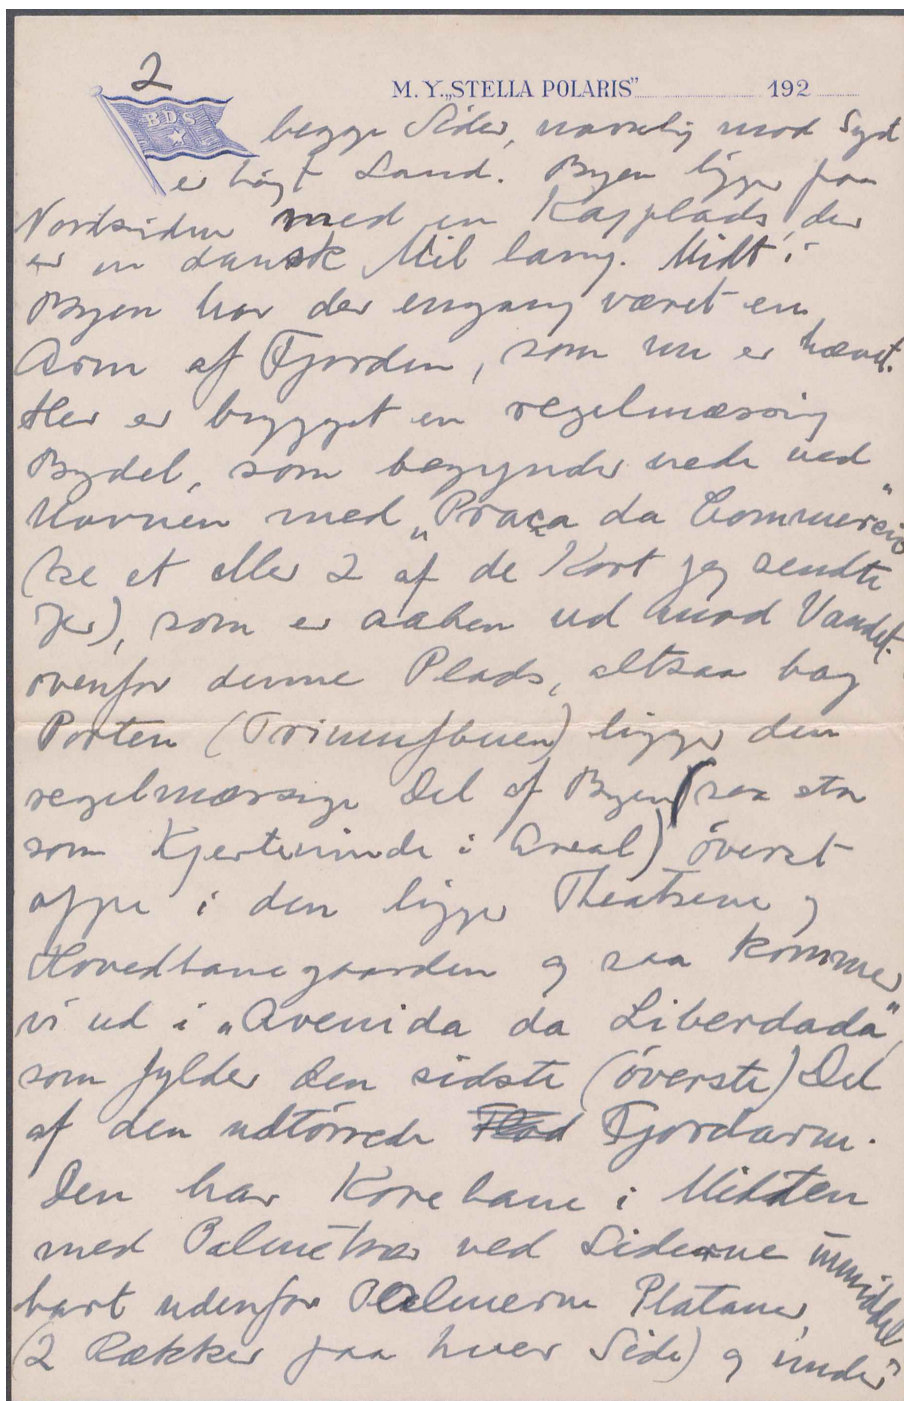 2
M. Y. „STELLA POLARIS" 192
BDS
begge Sider, navnlig mod Syd
er højt Land. Byen ligger paa
Nordsiden med en Kajplads, der
er en dansk Mil lang. Midt i
Byen har der engang været en
Arm af Fjorden, som nu er hævet.
Her er bygget en regelmæssig
Bydel, som begynder nede ved
Havnen med „Praça da Commercio"
(se et eller 2 af de Kort jeg sendte
Jer), som er aaben ud mod Vandet.
ovenfor denne Plads, altsaa bag
Porten (Triumfbuen) ligger den
regelmæssige Del af Byen (saa stor
som Kjerteminde i Areal) øverst
oppe i den ligger Theatrene og
Hovedbanegaarden og saa kommer
vi ud i „Avenida da Liberdada",
som fylder den sidste (øverste) Del
af den udtørrede Flod Fjordarm.
Den har Kørebane i Midten
med Palmetræer ved Siderne umiddel
bart udenfor Palmerne Plataner
(2 Rækker paa hver Side) og under